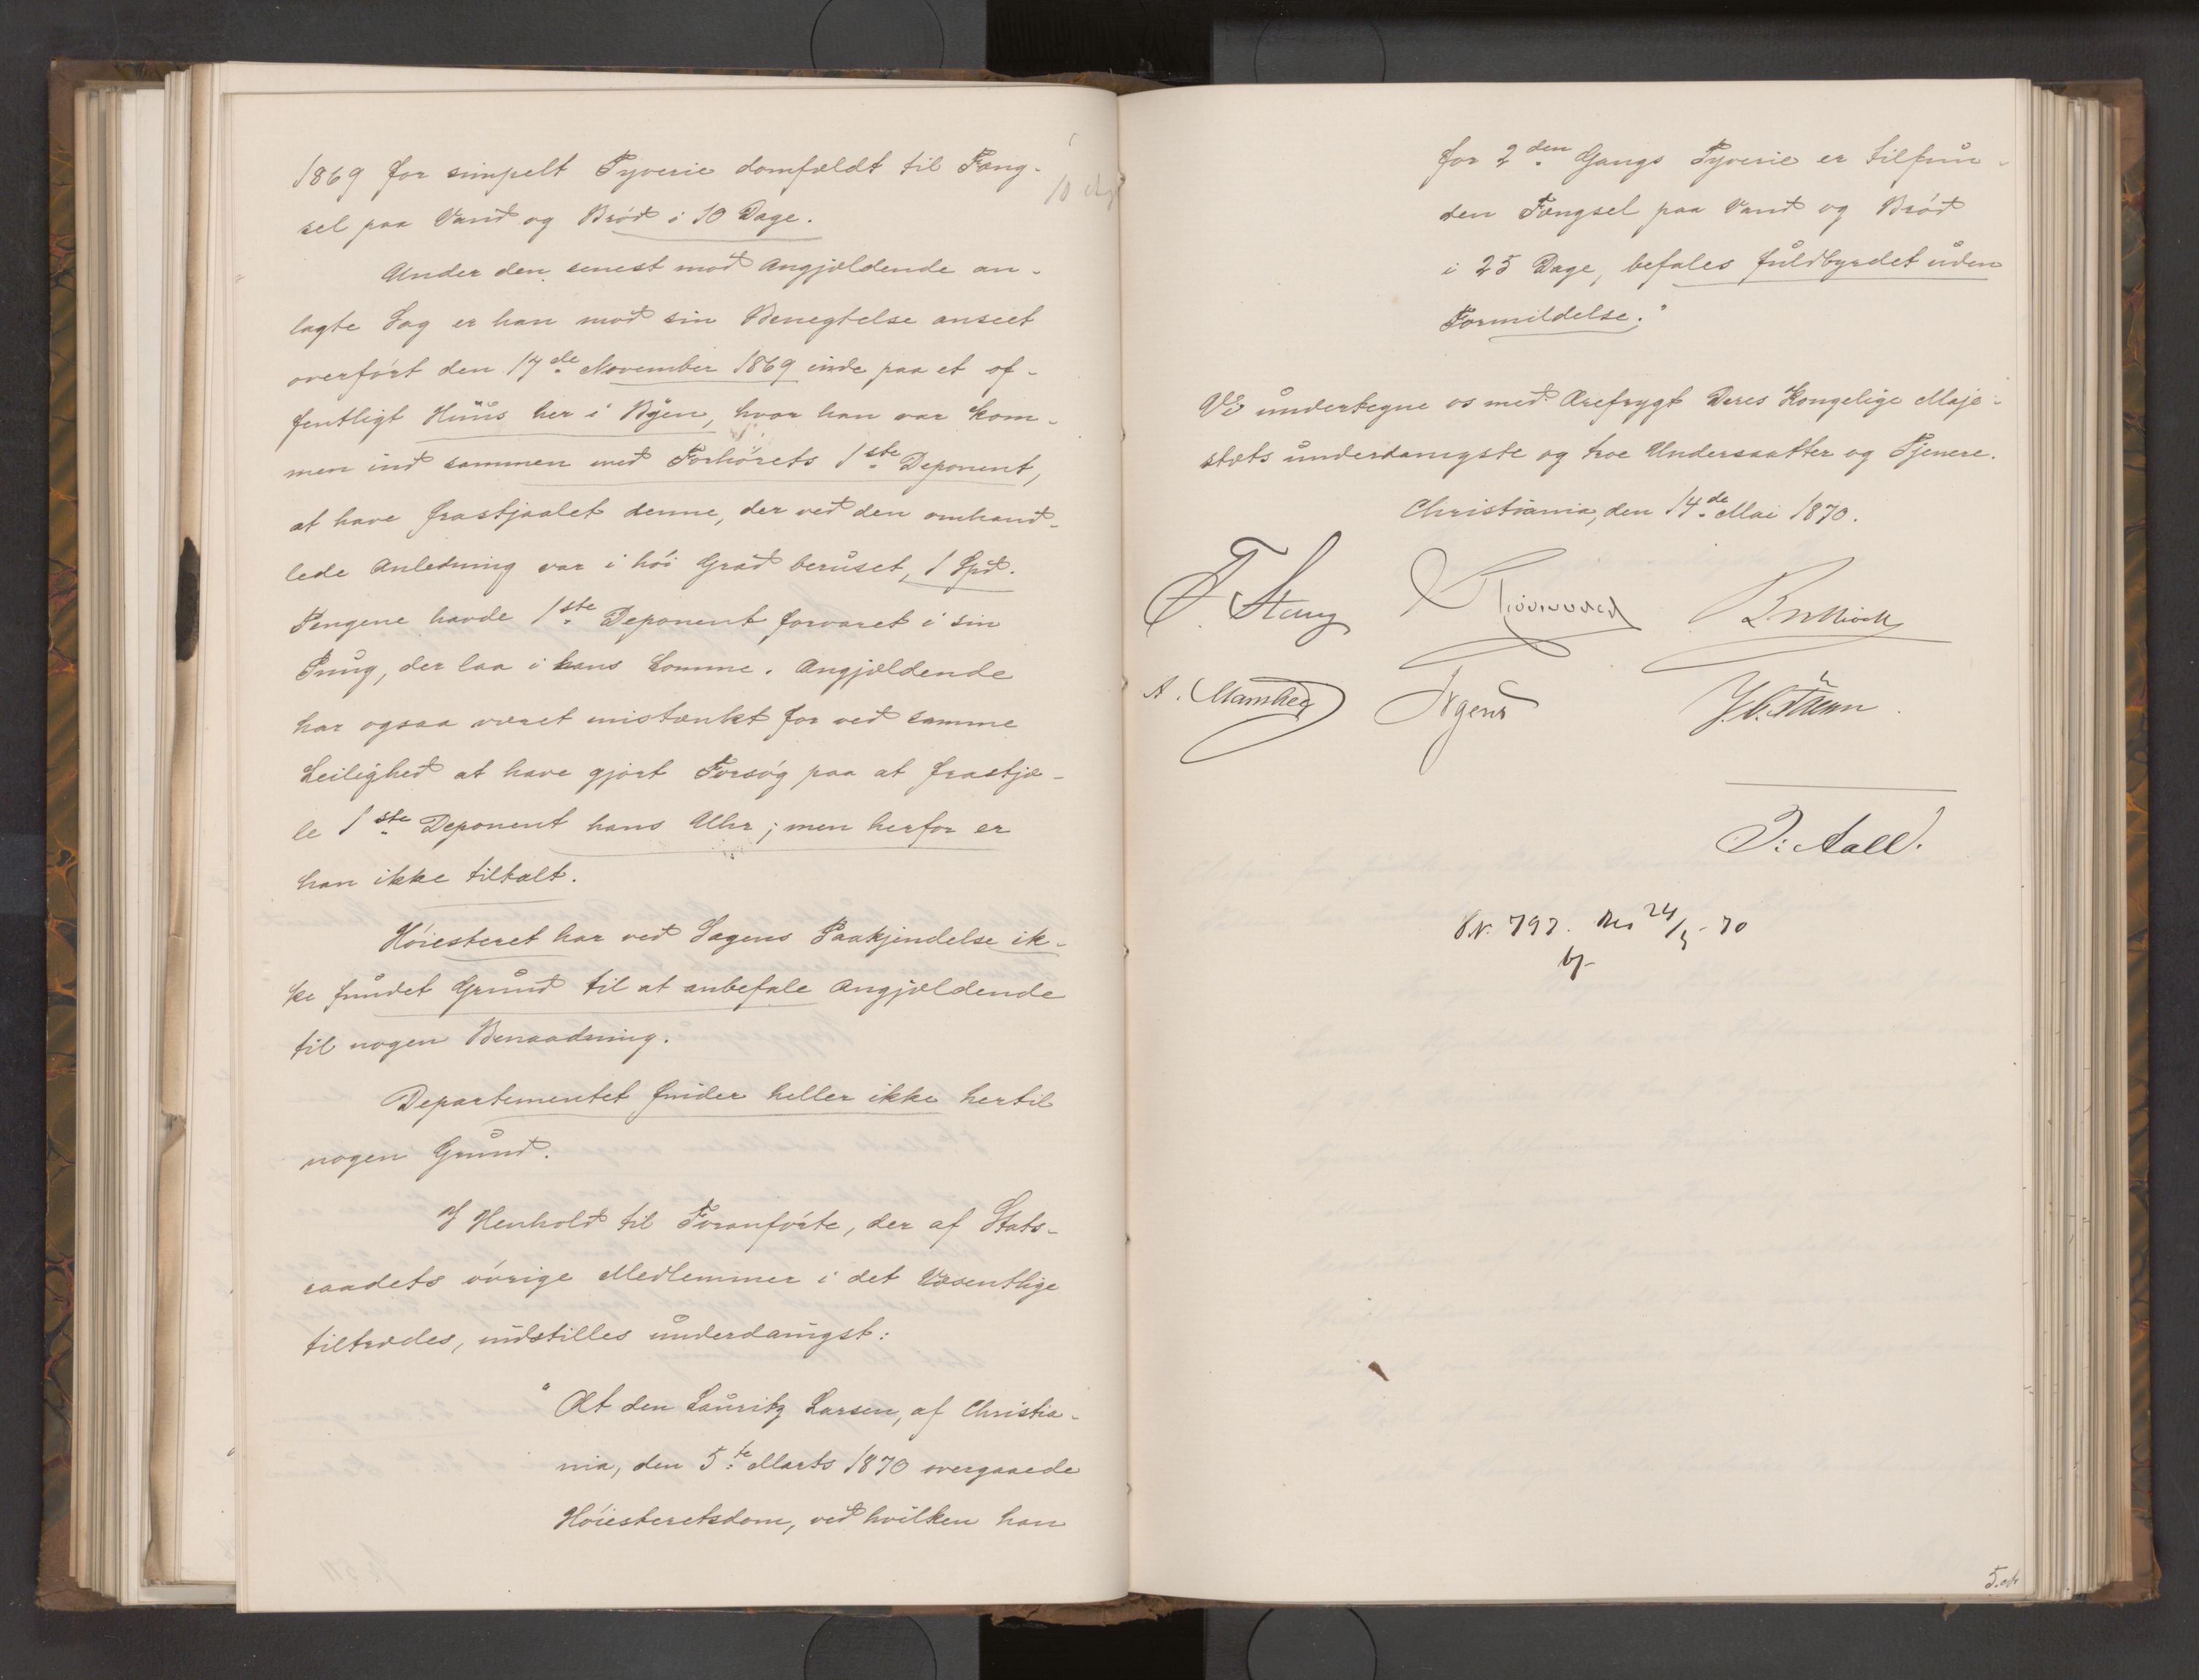 1869 for simpelt Tyverie domfældt til Fæng-
sel paa Vand og Brød i 10 Dage.
Under den senest mod Angjældende an-
lagte Sag er han mod sin Benegtelse anseet
overført den 17de November 1869 inde paa et of-
fentligt Huus her i Byen, hvor han var kom-
men ind sammen med Forhørets 1ste Deponent,
at have frastjaalet denne, der ved den omhand-
lede Anledning var i høi Grad beruset, 1 Spd.
Pengene havde 1ste Deponent forvaret i sin
Pung, der laa i hans Lomme. Angjældende
har ogsaa været mistænkt for ved samme
Leilighed at have gjort Forsøg paa at frastjæ-
le 1ste Deponent hans Uhr; men herfor er
han ikke tiltalt.
Høiesteret har ved Sagens Paakjendelse ik-
ke fundet Grund til at anbefale Angjældende
til nogen Benaadning.
Departementet finder heller ikke hertil
nogen Grund.
I Henhold til Foranførte, der af Stats-
raadets øvrige Medlemmer i det Væsentlige
tiltrædes, indstilles underdanigst:
"At den Lauritz Larsen, af Christia-
nia, den 5te Marts 1870 overgaaede
Høiesteretsdom, ved hvilken han
for 2den Gangs Tyverie er tilfun-
den Fængsel paa Vand og Brød
i 25 Dage, befales fuldbyrdet uden
Formildelse."
Vi undertegne os med Ærefrygt Deres Kongelige Maje-
stæts underdanigste og troe Undersaatter og Tjenere.
Christiania, den 14de Mai 1870.
F. Stang
A. Manthey Irgens
J. Aall.
797. 24/5-70